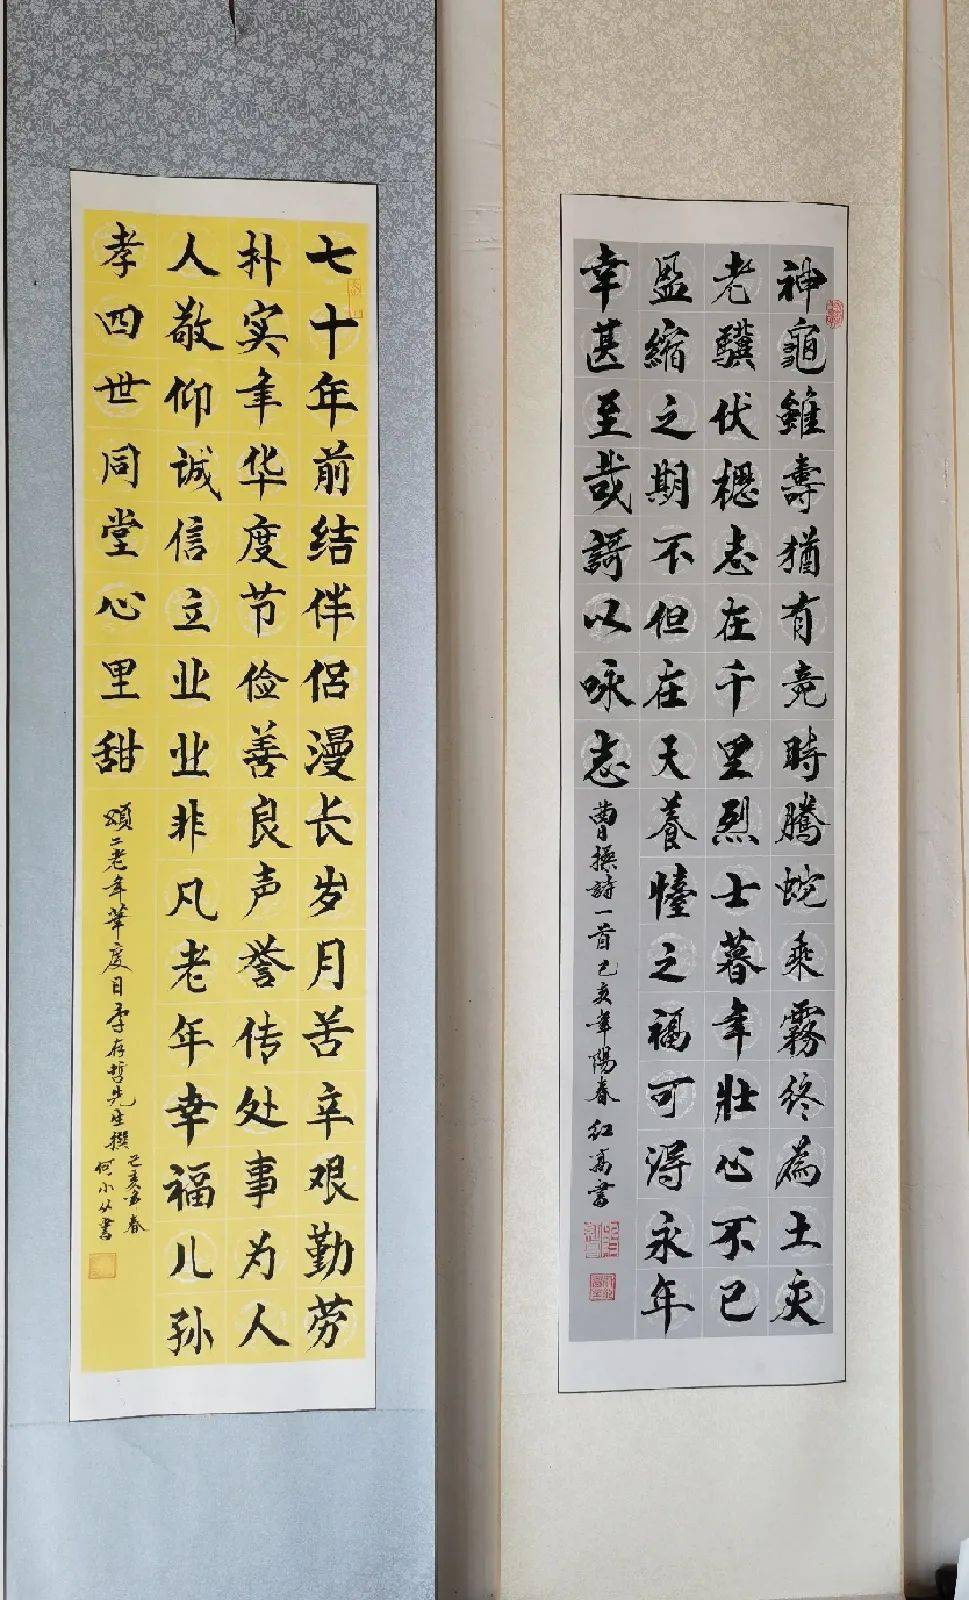 神龜雖壽猶有竟時騰蛇乘霧終為土灰
老驥伏櫪志在千里烈士暮年壯心不已
盈縮之期不但在天養懛之福可得永年
幸甚至哉謌以咏志
曹操詩一首己亥年陽春红高書
七十年前结伴侣漫长岁月苦辛艰勤劳
朴实年华度节俭善良声誉传处事为人
人敬仰诚信立业业非凡老年幸福儿孙
孝四世同堂心里甜
頌二老年華度日李存哲先生撰
己亥年春
何小从書